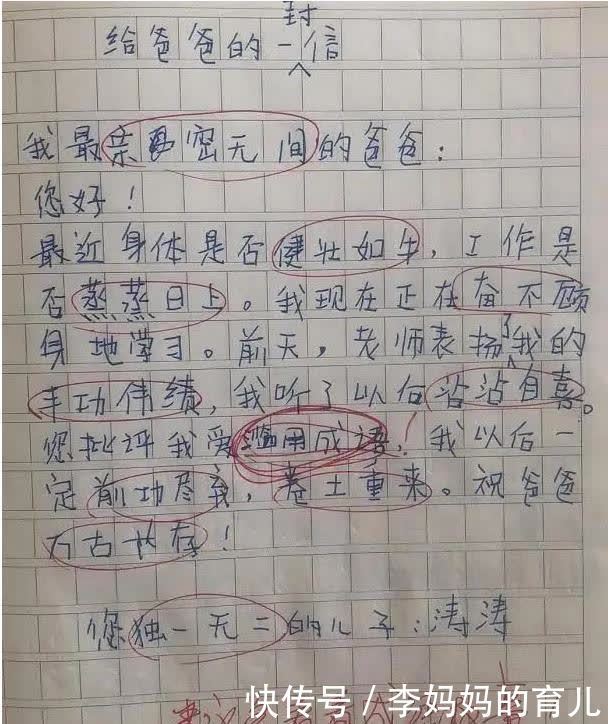 给爸爸的一封信
我最亲密无间的爸爸：
您好！
最近身体是否健壮如牛，工作是
否蒸蒸日上。我现在正在奋不顾
身地学习。前天，老师表扬了我的
丰功伟绩，我听了以后沾沾自喜。
您批评我爱滥用成语，我以后一
定前功尽弃，卷土重来。祝爸爸
万古长存！
您独一无二的儿子：涛涛
快传号/李妈妈的育儿